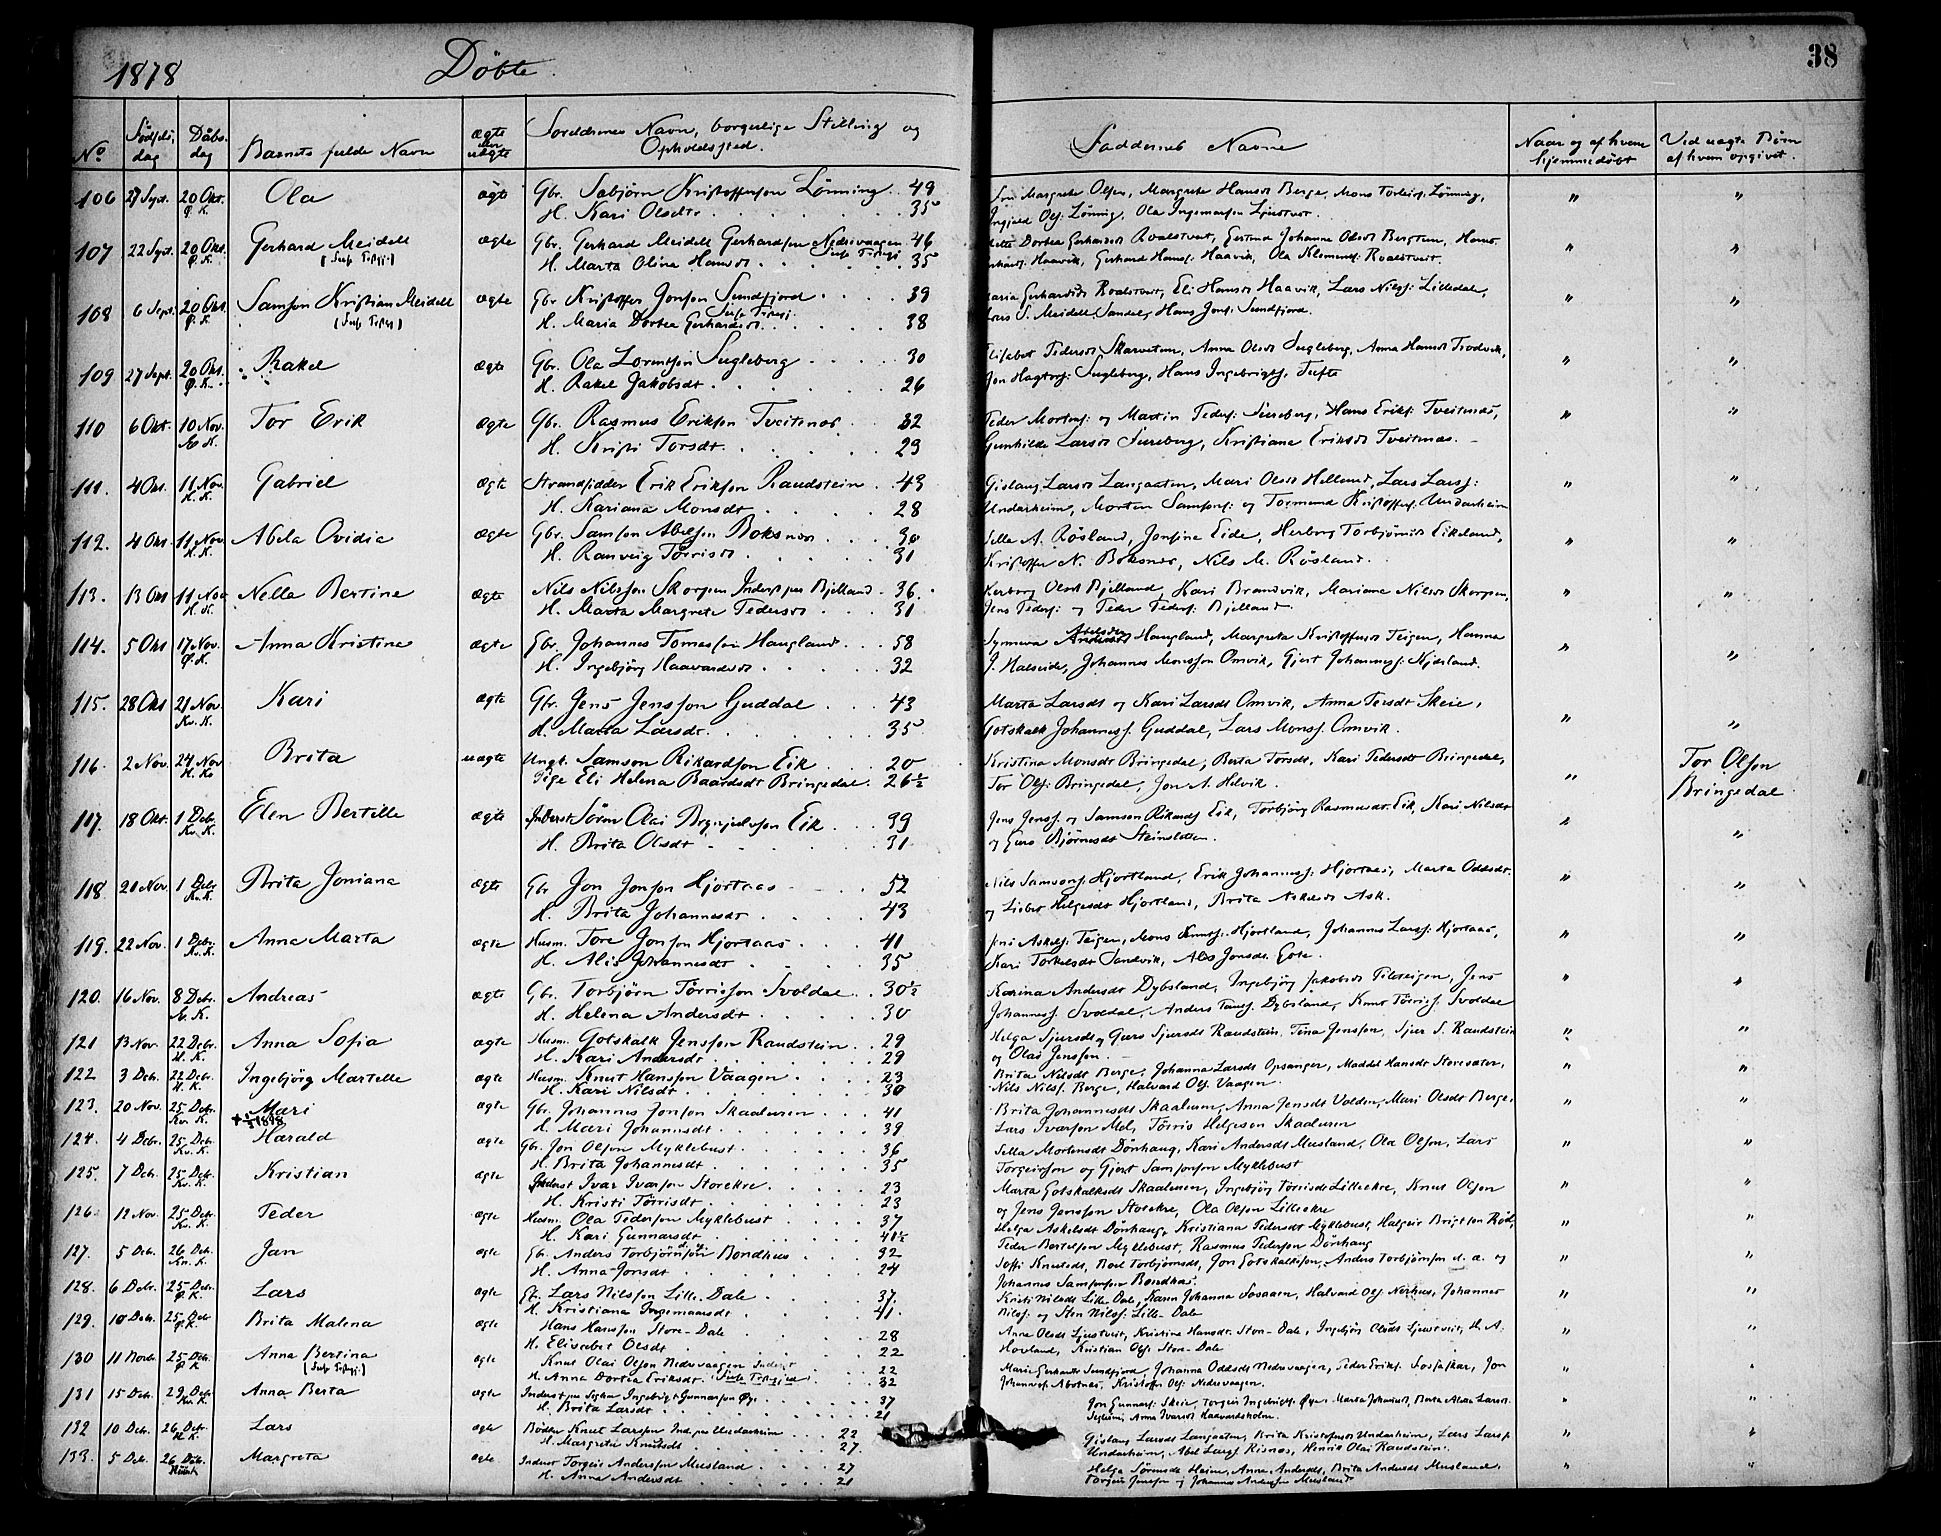 1878 Döbte. 38
No Födsels dag Daabs dag Barnets fulde Navn ægte eller uægte Forældrenes Navn, borgerlige Stilling og Opholdssted. Faddernes Navne Naar og af hvem hjemmedöbt Ved uægte Börn af hvem opgivet.
106 27 Sept. 20 Okt. Ola ægte Gbr. Sæbjörn Kristoffersen Lönning 48
Ö. K. H. Kari Olsdtr. 35
Margrete Olsen, Margrete Hansdt Berge, Mons Torkels. Lönning,
Ingjald Ols. Lönning, Ola Ingemarsen Ljustveit.
107 22 Sept. 20 Okt. Gerhard Meidell ægte Gbr. Gerhard Meidell Gerhardsen Nedrevaagen 46
Ö. K. H. Marta Olina Hansdt 35
Dortea Gerhardsdt Roaldstveit, Gertrud Johanne Olsdt Bergtun, Hans
Haavik, Gerhard Hans. Haavik, Ola Klemens. Roaldstveit.
108 6 Sept. 20 Okt. Samson Kristian Meidell ægte Gbr Kristoffer Jonson Sundfjord 39
Ö. K. H. Maria Dortea Gerhardsdt 38
Maria Gerhardsdt Roaldstveit, Eli Hansdt Haavik, Lars Nilss. Lilledal,
Lars S. Meidell Sandal, Hans Jons. Sundfjord.
109 27 Sept. 20 Okt. Rakel ægte Gbr. Ola Lorentsen Fugleberg 30
Ö. K. H. Rakel Jakobsdt. 26
Elisabet Pedersdt Skarvatun, Anna Olsdt Fugleberg, Anna Hansdt Trodvik,
Jon Hagtors. Fugleberg, Hans Ingebrigts. Tufte
110 6 Okt. 10 Nov. Tor Erik ægte Gbr. Rasmus Erikson Tveitenes 32
Æ. K. H. Kristi Torsdt. 29
Peder Mortens. og Martin Peders. Fureberg, Hans Eriks. Tveitnes,
Gunhilde Larsdt Fureberg, Kristiane Eriksdt Tveitnes.
111. 4 Okt. 11 Nov. Gabriel ægte Strandsidder Erik Erikson Raudstein 43
H. K. H. Kariana Monsdt 28
Gislaug Larsdt Langgaaten, Mari Olsdt Helland, Lars Larss.
Undarheim, Morten Samsons. og Tormund Kristoffers. Undarheim
112. 4 Okt. 11 Nov Abela Ovidia ægte Gbr. Samson Abelson Boksnes 30
H. K. H. Ranveig Törrisdt 31
A. Rösland, Josefine Eide, Herborg Torbjörnsdt Eikeland,
Kristoffer N. Boksnes, Nils M. Rösland.
113. 13 Okt 11 Nov Nella Bertine ægte Nils Nilsson Skorpen Inderst paa Bjelland 36.
H. K. H. Marta Margrete Pedersdt 31
Herborg Olsdt Bjelland, Kari Brandvik, Mariane Nilsdt Skorpen,
Jens Peders. og Peder Peders. Bjelland.
114. 5 Okt 17 Nov. Anna Kristina ægte Gbr. Johannes Tomasson Haugland 58
Ö. K. H. Ingebjörg Haavardsdt 32
Synneva Abelsdtr Haugland, Margreta Kristoffersdt Teigen, Hanna
J. Halseide, Johannes Monsson Omvik, Gjert Johanness. Njerland.
115. 28 Okt 21 Nov. Kari ægte Gbr. Jens Jensson Guddal 43
Kv. K. H. Marta Larsdt. 35
Marta Larsdt og Kari Larsdt Omvik, Anna Persdt Skeie,
Gotskalk Johanness. Guddal, Lars Monss. Omvik.
116. 2 Nov. 24 Nov Brita uægte Ungk. Samson Rikardson Eik 20
H. K. Pige Eli Helena Baardsdt Bringedal. 26½
Kristina Monsdt Bringedal, Berta Torsdt, Kari Pedersdt Bringedal,
Tor Ols. Bringedal, Jon A. Helvik.
Tor Olson
Bringedal.
117. 18 Okt. 1 Debr. Elen Bertille ægte Inderst Sören Olai Brynjulvson Eik 39
Kv. K. H. Brita Olsdt 31
Jens Jenss. og Samson Rikards Eik, Torbjörg Rasmusdt. Eik, Kari Nilsdt
og Guro Björnesdt Steinsletten.
118 21 Nov. 1 Debr. Brita Joniana ægte Gbr Jon Jonson Hjortaas 52
Kv. K. H. Brita Johannesdt 43
Nils Samsons. Hjortland, Erik Johanness. Hjortaas, Marta Oddsdt.
og Lisbet Helgesdt Hjortland, Brita Askelsdt Ask.
119. 22 Nov. 1 Debr. Anna Marta ægte Husm. Tore Jonson Hjortaas 41
Kv. K. H. Alis Johannesdt 35
Askels. Teigen, Mons Knuts. Hjortland, Johannes Larss. Hjortaas,
Kari Torkelsdt Sandvik, Alis Jonsdt Gote.
120. 16 Nov. 8 Debr. Andreas ægte Gbr. Torbjörn Törrisson Svoldal 30½
Æ. K. H. Helena Andersdt 30
Karina Andersdt Dybsland, Ingebjörg Jakobsdt Pileteigen, Jens
Johanness. Svoldal, Anders Hans. Dybsland, Knut Törriss. Svoldal
121 13 Nov. 22 Debr. Anna Sofia ægte Husm. Gotskalk Jensson Raudstein 29
H. K. H. Kari Andersdt 29
Helga Sjursdt og Guro Sjursdt Raudstein, Tina Jensson, Sjur S. Raudstein
og Olai Jensson.
122 3 Debr. 22 Debr. Ingebjörg Martelle ægte Husm. Knut Hansson Vaagen 23
H. K. H. Kari Nilsdt 30
Brita Nilsdt Berge, Johanna Larsdt Opsanger, Maddel Hansdt Storesæter,
Nils Nilss. Berge, Halvard Ols. Vaagen.
123. 20 Nov. 25 Debr. Mari ægte Gbr. Johannes Jonson Skaaluren 41
Kv. K. H. Mari Johannesdt 39
Brita Johannesdt Skaaluren, Anna Jensdt Valden, Mari Olsdt Berge,
Lars Ivarson Mel, Törris Helgeson Skaaluren
124. 4 Debr. 25 Debr. Harald ægte Gbr. Jon Olson Myklebust 36
Kv. K. H. Brita Johannesdt 35
Sella Mortensdt Dönhaug, Kari Andersdt Musland, Ola Olson, Lars
Torgeirsson og Gjert Samsonson Myklebust
125. 7 Debr. 25 Debr. Kristian ægte Inderst Ivar Ivarson Storekre 23
Kv. K. H. Kristi Törrisdt 23
Marta Gotskalksdt Skaaluren, Ingebjörg Törrisdt Lilleekre, Knut Olson
og Jens Jensson Storekre, Ola Olson Lilleekre
126. 12 Nov. 25 Debr Peder ægte Husm. Ola Pederson Myklebust 37
Kv. K. H. Kari Gunnarsdt 41½
Helga Askelsdt Dönhaug, Kristiana Pedersdt Myklebust, Halgeir Brigtson Röd,
Peder Bertelson Myklebust, Rasmus Pederson Dönhaug
127. 5 Debr. 26 Debr. Jan ægte Gbr. Anders Torbjörnson Bondhus 32
Kv. K. H. Anna Jonsdt 24
Soffi Knutsdt, Boel Torbjörnsdt, Jon Gotskalkson, Anders Torbjörnson d. æ. og
Johannes Samsonson Bondhus.
128. 6 Debr. 25 Debr. Lars ægte Gbr. Lars Nilsson Lille-Dale 37
Ö. K. H. Kristiana Ingemarsdt 41.
Kristi Nilsdt Lille Dale, Karen Johanna Sosaaen, Halvard Ols. Nerhus, Johannes
Nilss. og Sten Nilss. Lille-Dale
129. 10 Debr. 25 Debr Brita Malena ægte Hans Hansson Store-Dale 28
Ö. K. H. Elisabet Olsdt 22
Anna Olsdt Ljustveit, Kristine Hansdt. Store-Dale, Ingebjörg Olsdt Ljustveit, H. A.
Hovland, Kristian Ols. Store-Dale
130 11 Novbr. 25 Debr. Anna Bertina ægte Knut Olai Olson Nedrevaagen Inderst 22
Ö. K H. Anna Dortea Eriksdt. 32
Marie Gerhardsdt Sundfjord, Johanna Oddsdt Nedrevaagen, Peder Eriks. Fosfaskar, Jon
Johannes. Abotnes, Kristoffer Ols. Nedrevaagen.
131 15 Debr. 29 Debr Anna Berta ægte Inderst paa Ingebrigt Gunnarson Öye 37
Kv. K. H. Brita Larsdt 21
Jon Gunnars. Skeie, Torgeir Ingebrigts. Öye, Marta Johansdt, Berta Alida Larsdt
Anna Ivarsdt Haavardsholm.
132 10 Debr. 26 Debr Lars ægte Bödker Knut Larsson Ind. paa Undarheim 22
H. K. H. Margreta Knutsdt 27.
Gislaug Larsdt Langgaaten, Brita Kristofersdt Undarheim, Lars Larss.
Undarheim, Abel Larss. Risnes, Henrik Olai Raudstein.
133. 5 Debr. 26 Debr. Margreta ægte Inderst Torgeir Anderson Musland 27
H. Anna Andersdt 21
Helga Sörensdt Heien, Anna Andersdt, Brita Andersdt Musland,
Torgeir Jenson og Johannes Anderson Musland